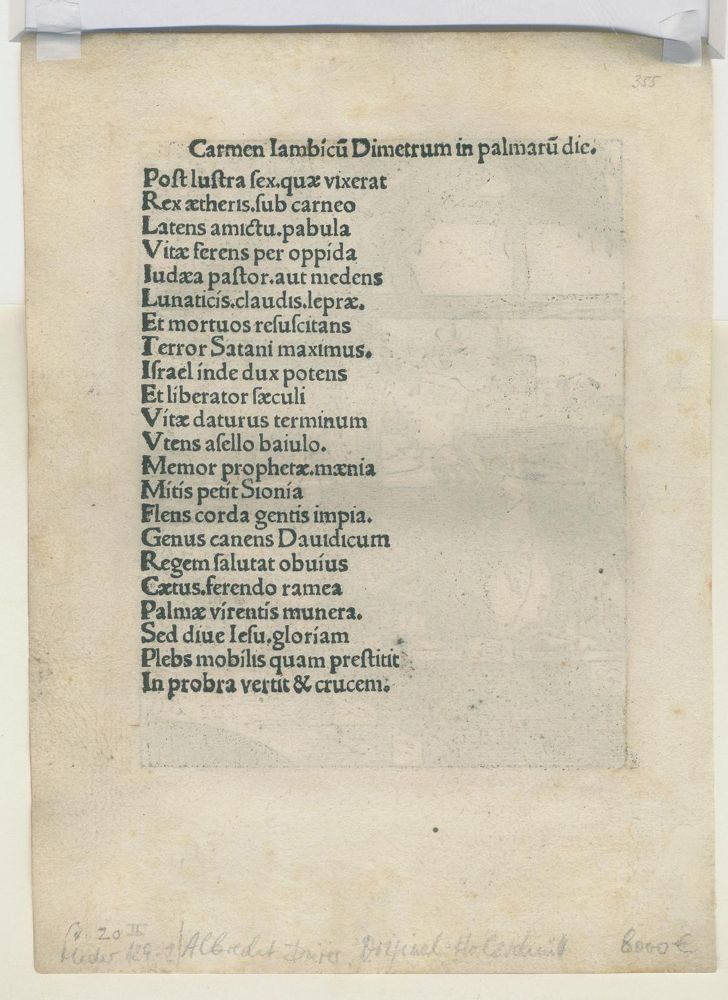 355
Carmen Iambicū Dimetrum in palmarū die.
Poſt luſtra ſex.quæ vixerat
Rex ætheris.ſub carneo
Latens amictu.pabula
Vitæ ferens per oppida
Iudæa paſtor.aut medens
Lunaticis.claudis.lepræ.
Et mortuos reſuſcitans
Terror Satani maximus.
Iſrael inde dux potens
Et liberator ſæculi
Vitæ daturus terminum
Vtens aſello baiulo.
Memor prophetæ.mænia
Mitis petit Sionia
Flens corda gentis impia.
Genus canens Dauidicum
Regem ſalutat obuius
Cætus.ferendo ramea
Palmæ virentis munera.
Sed diue Ieſu.gloriam
Plebs mobilis quam preſtitit
In probra vertit & crucem.
20 III
Meder 129-2 Albrecht Dürer, Original-Holzschnitt 8000 €